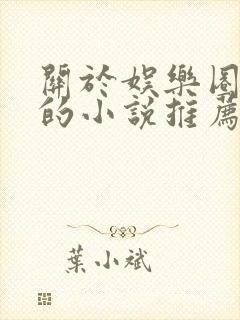 關於娛樂圈
的小說推薦
葉小斌